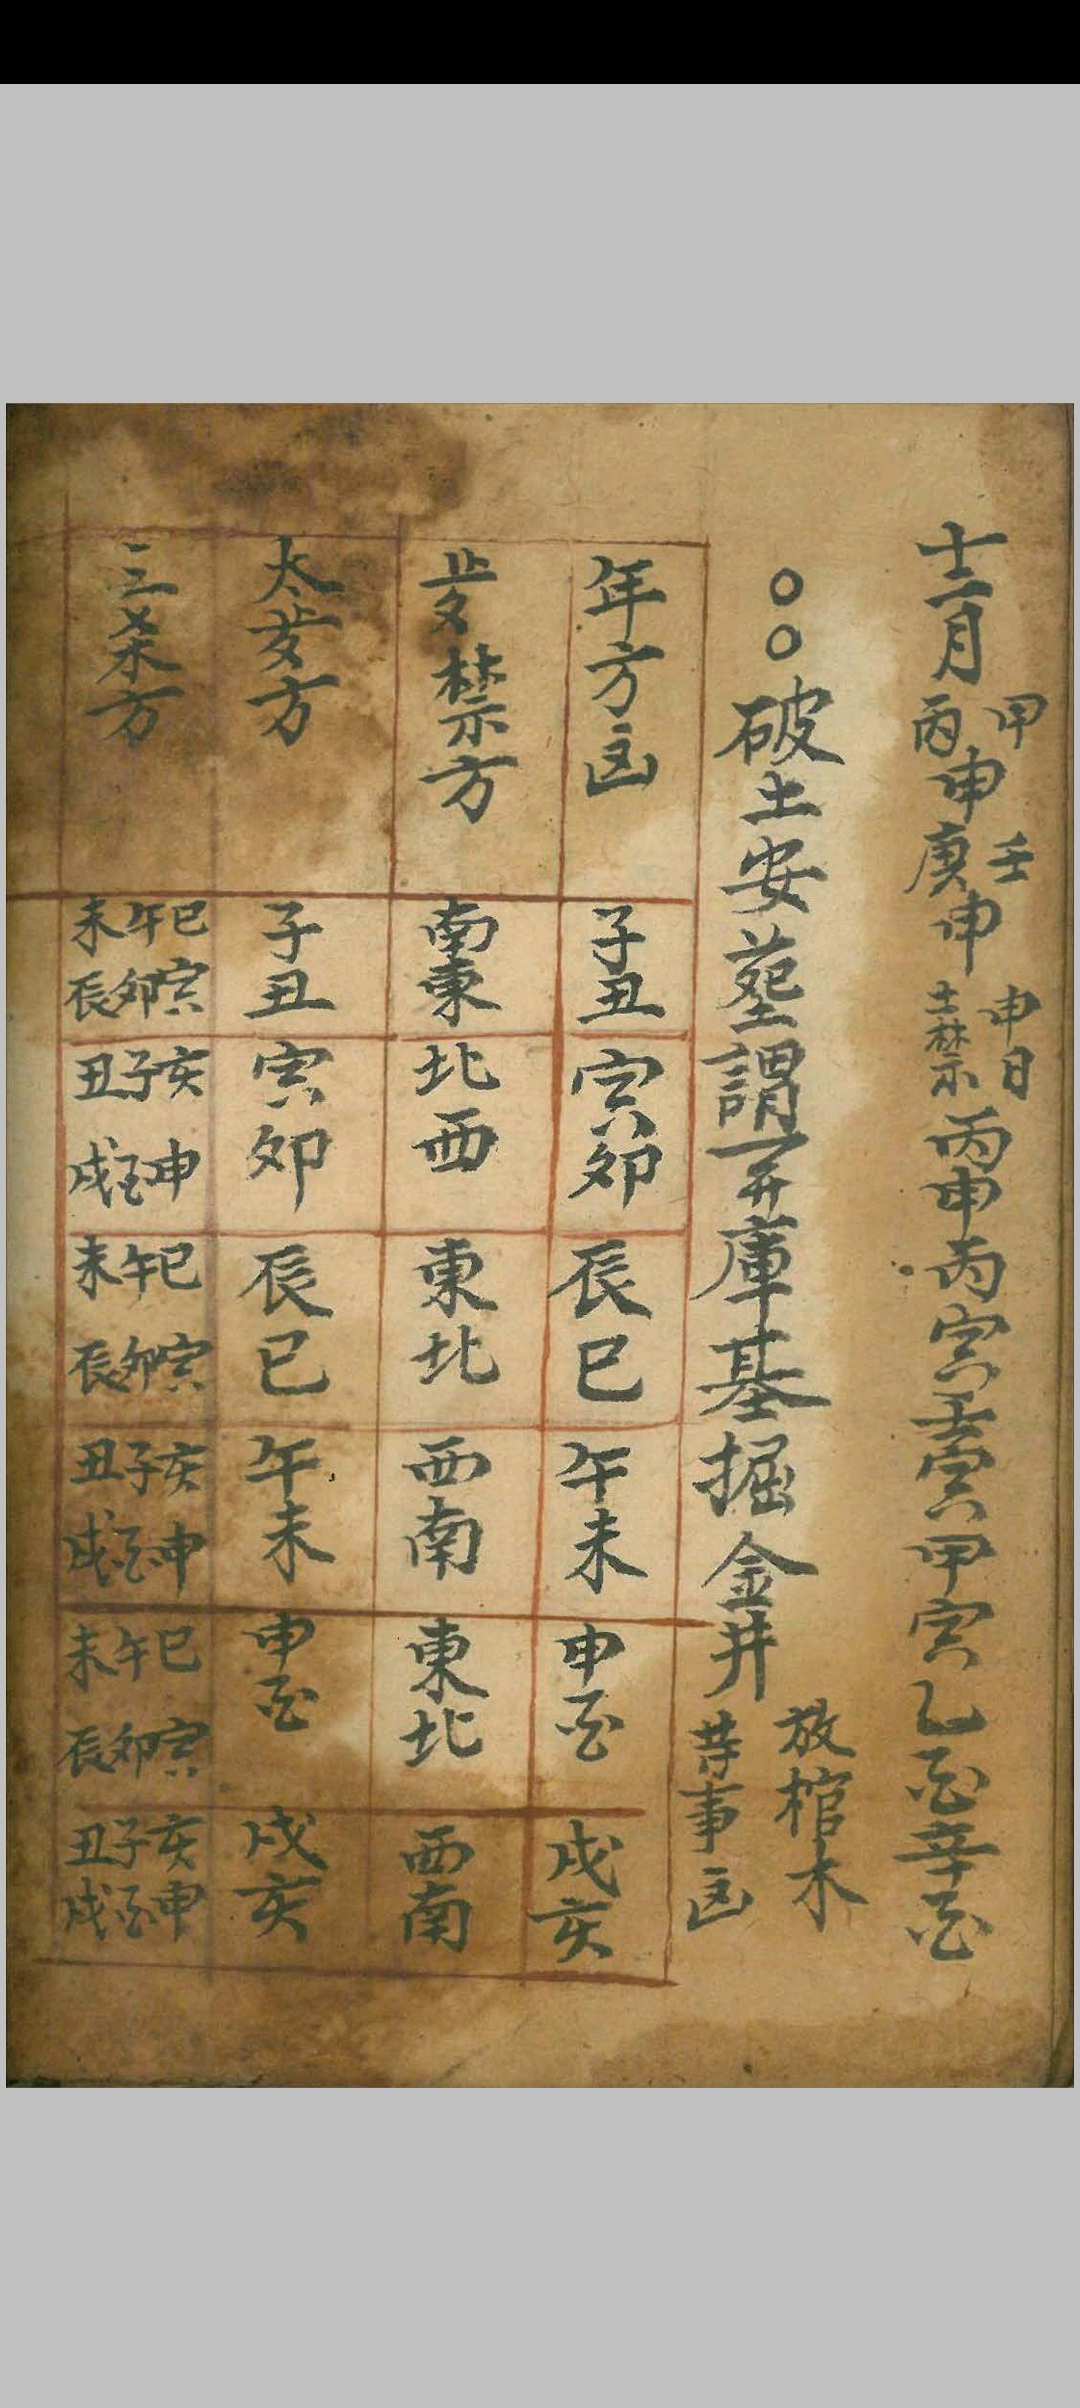 十二月甲丙申壬庚申申日土禁丙申丙寅壬寅甲寅乙酉辛酉
○○破土安墓謂開庫基掘金井放棺木等事凶
年方凶 子丑 寅卯 辰巳 午未 申酉 戌亥
禁方 南東 北西 東北 西南 東北 西南
太歲方 子丑 寅卯 辰巳 午未 申酉 戌亥
三杀方 巳午未寅卯辰 亥子丑申酉戌 巳午未寅卯辰 亥子丑申酉戌 巳午未寅卯辰 亥子丑申酉戌